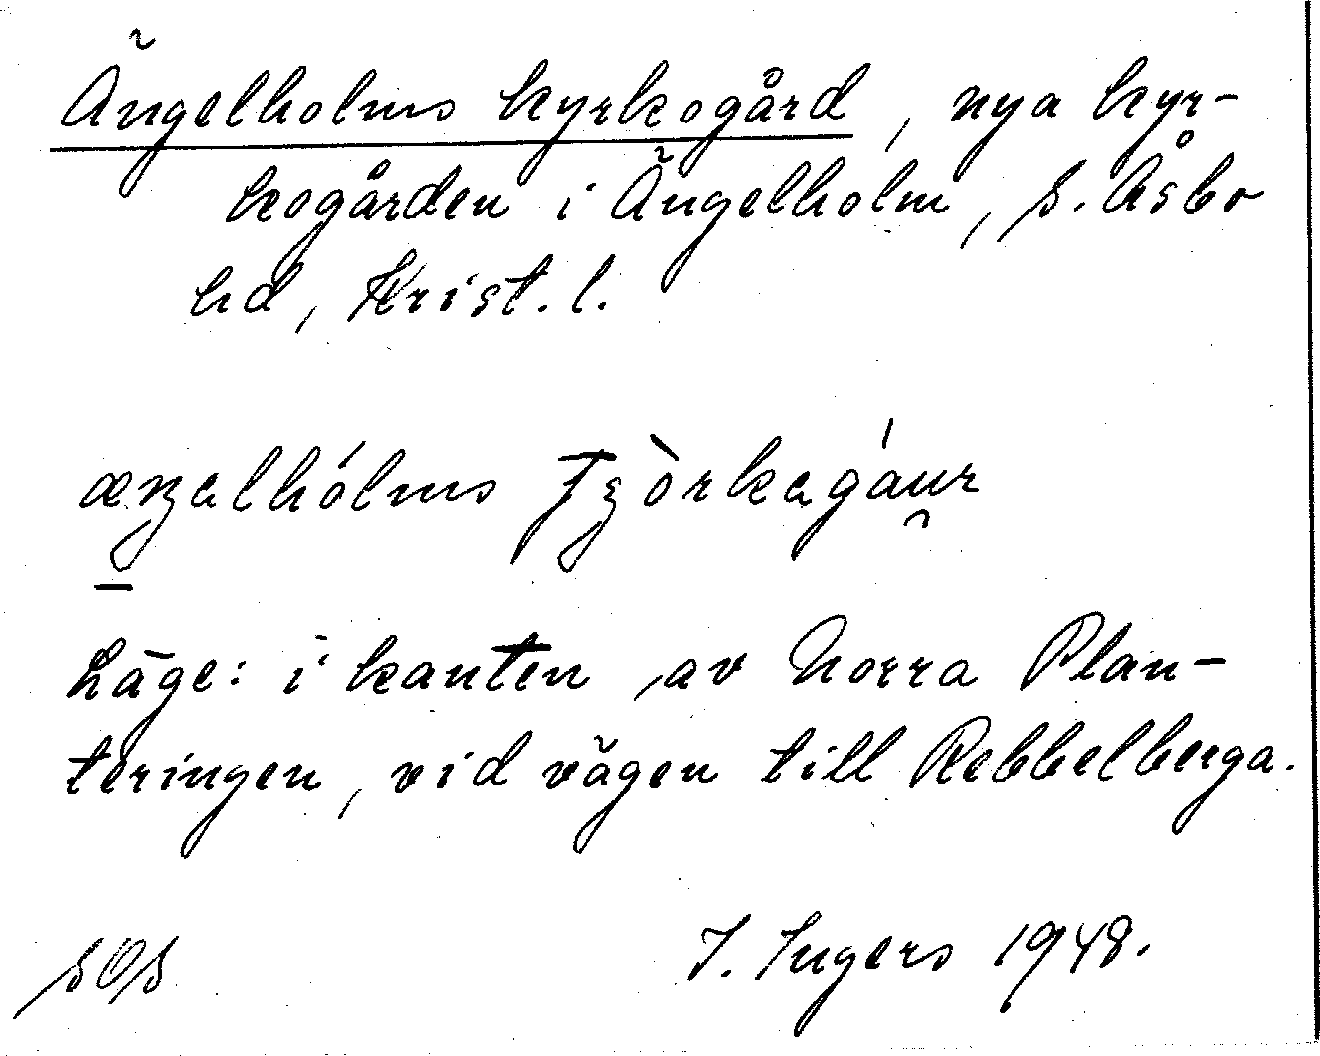 Ängelholms kyrkogård, nya kyr-
kogården i Ängelholm, S. Åsbo
hd, Krist. l.
æŋəlhólms
Läge: i kanten av Norra Plan-
teringen, vid vägen till Rebbelberga.
SOS
I. Ingers 1948.